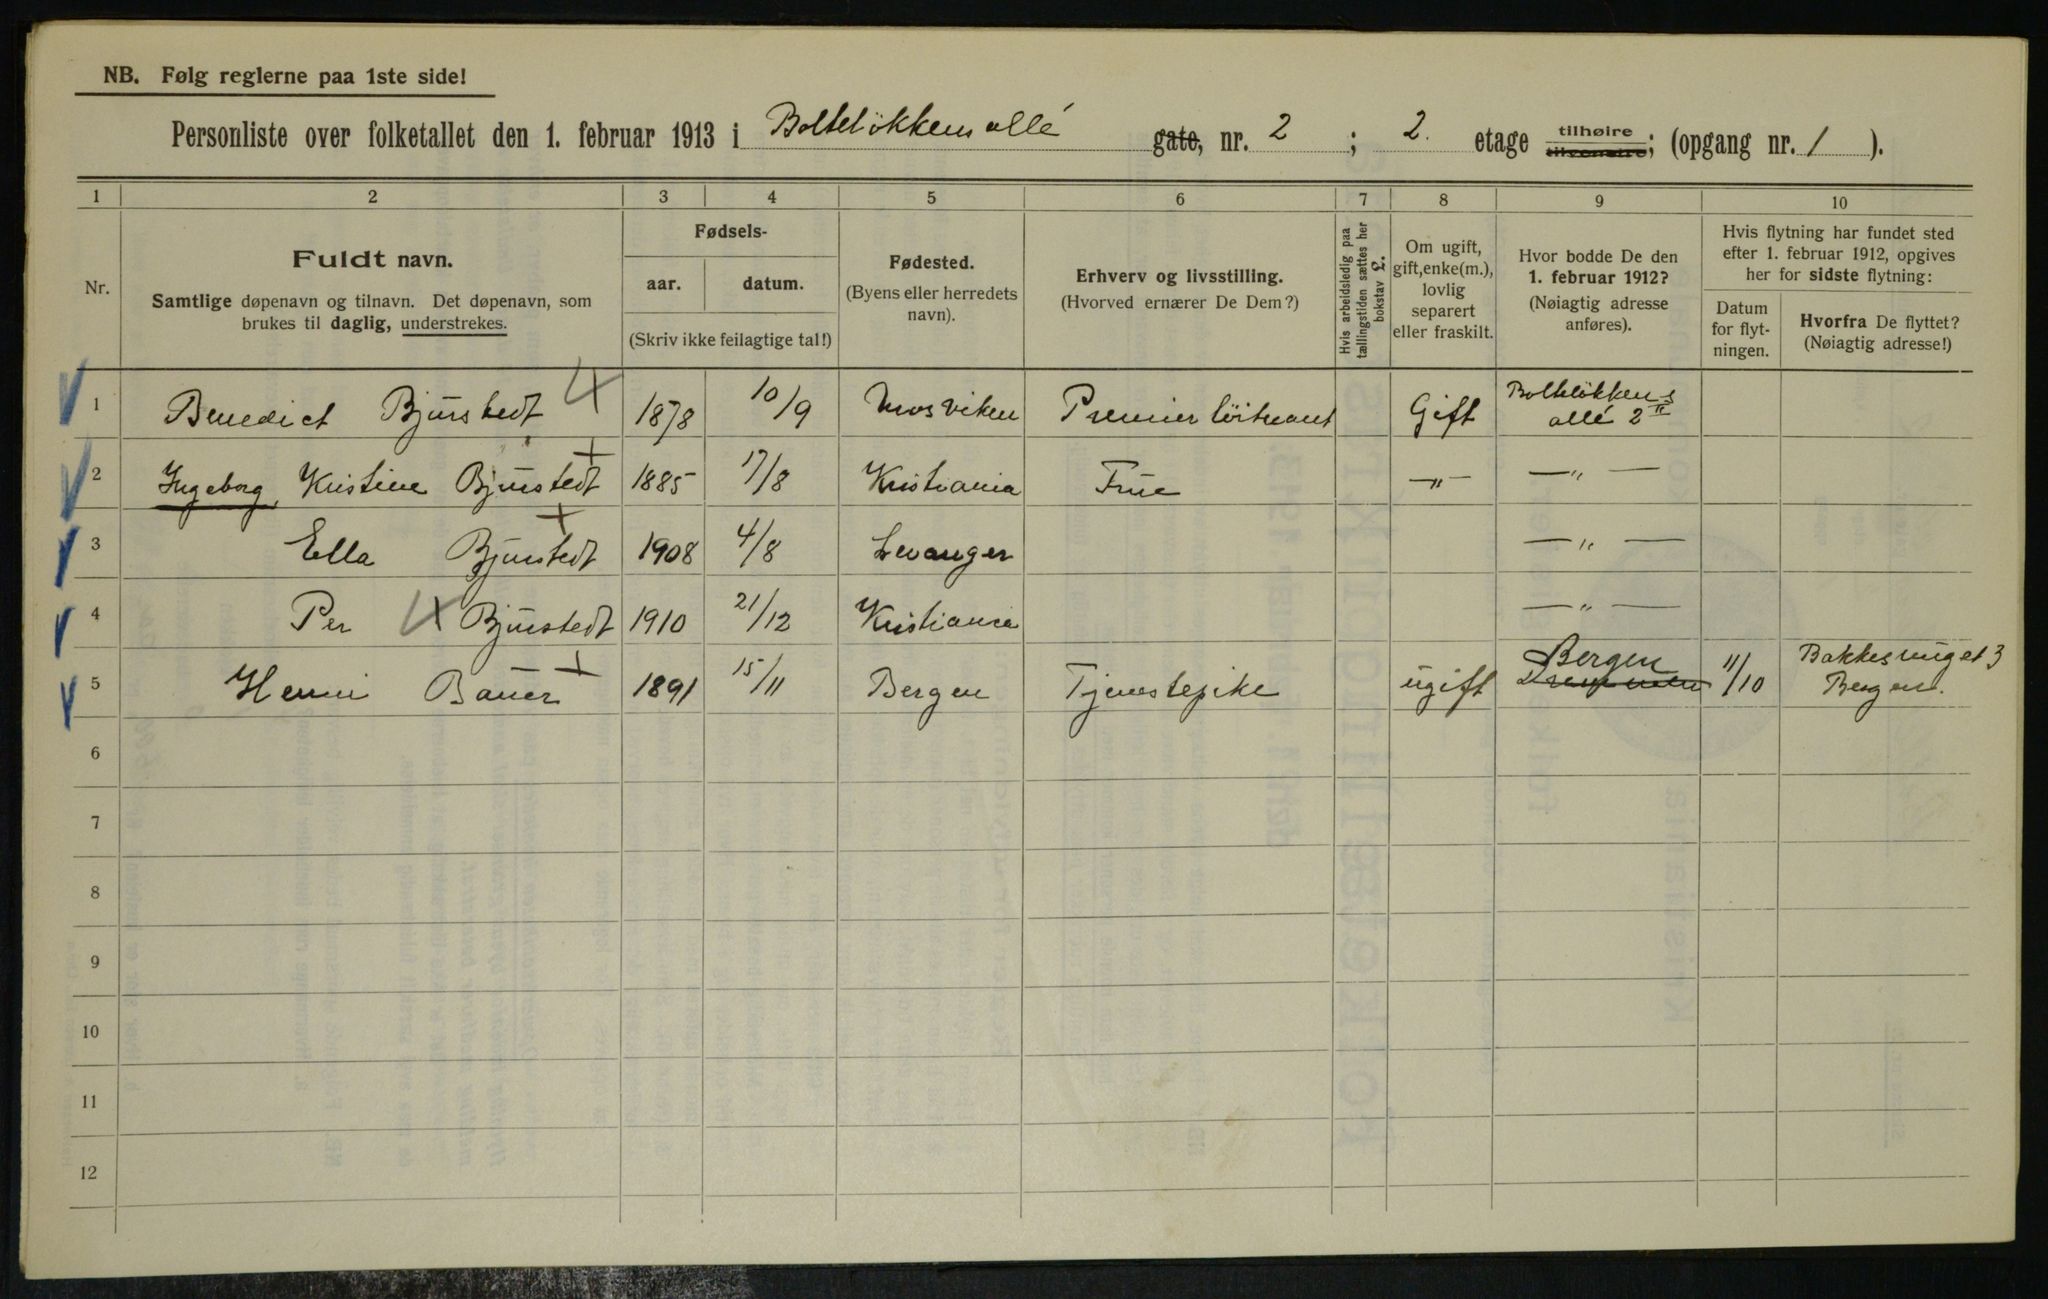 NB. Følg reglerne paa 1ste side!
Personliste over folketallet den 1. februar 1913 i Bolteløkkens allé gate, nr. 2 ; 2. etage tilhøire tilvenstre; (opgang nr. 1 ).
1 2 3 4 5 6 7 8 9 10
Nr.
Fuldt navn.
Samtlige døpenavn og tilnavn. Det døpenavn, som
brukes til daglig, understrekes.
Fødsels-
aar. datum.
(Skriv ikke feilagtige tal!)
Fødested.
(Byens eller herredets
navn).
Erhverv og livsstilling.
(Hvorved ernærer De Dem?)
Hvis arbeidsledig paa
tællingstiden sættes her
bokstav £.
Om ugift,
gift, enke(m.),
lovlig
separert
eller fraskilt.
Hvor bodde De den
1. februar 1912?
(Nøiagtig adresse
anføres).
Hvis flytning har fundet sted
efter 1. februar 1912, opgives
her for sidste flytning:
Datum
for flyt-
ningen.
Hvorfra De flyttet?
(Nøiagtig adresse!)
1 Benedict Bjurstedt 4 1878 10/9 Mosviken Premierløitnant Gift Bolteløkkens
allé 2 II
2 Ingeborg Kristine Bjurstedt + 1885 17/8 Kristiania Frue —"— —"—
3 Ella Bjurstedt + 1908 4/8 Levanger —"—
4 Per 4 Bjurstedt 1910 21/12 Kristiania —"—
5 Henni Bauer + 1891 15/11 Bergen Tjenstepike ugift Bergen 11/10 Bakkesmuget 3
Drammen Bergen.
6
7
8
9
10
11
12